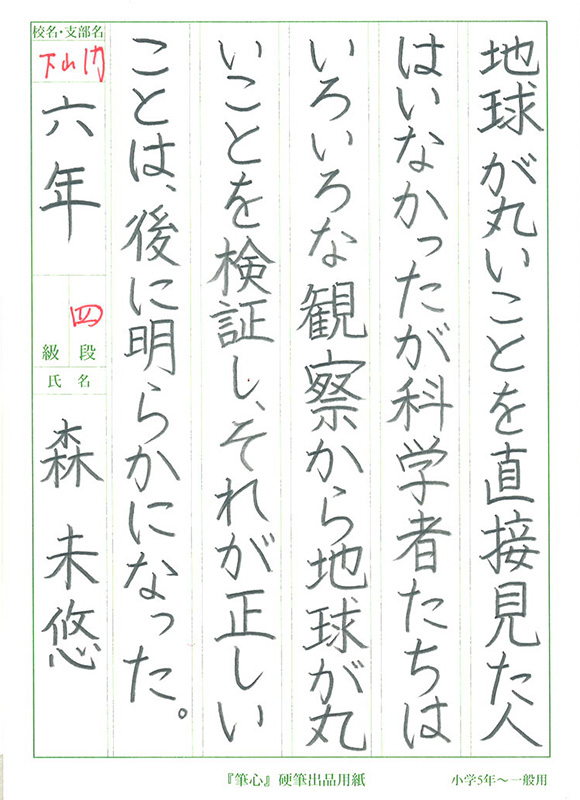 地球が丸いことを直接見た人
はいなかったが科学者たちは
いろいろな観察から地球が丸
いことを検証し、それが正しい
ことは、後に明らかになった。
校名・支部名
下山門
六年
四
級 段
氏 名
森 未悠
『筆心』硬筆出品用紙
小学5年〜一般用